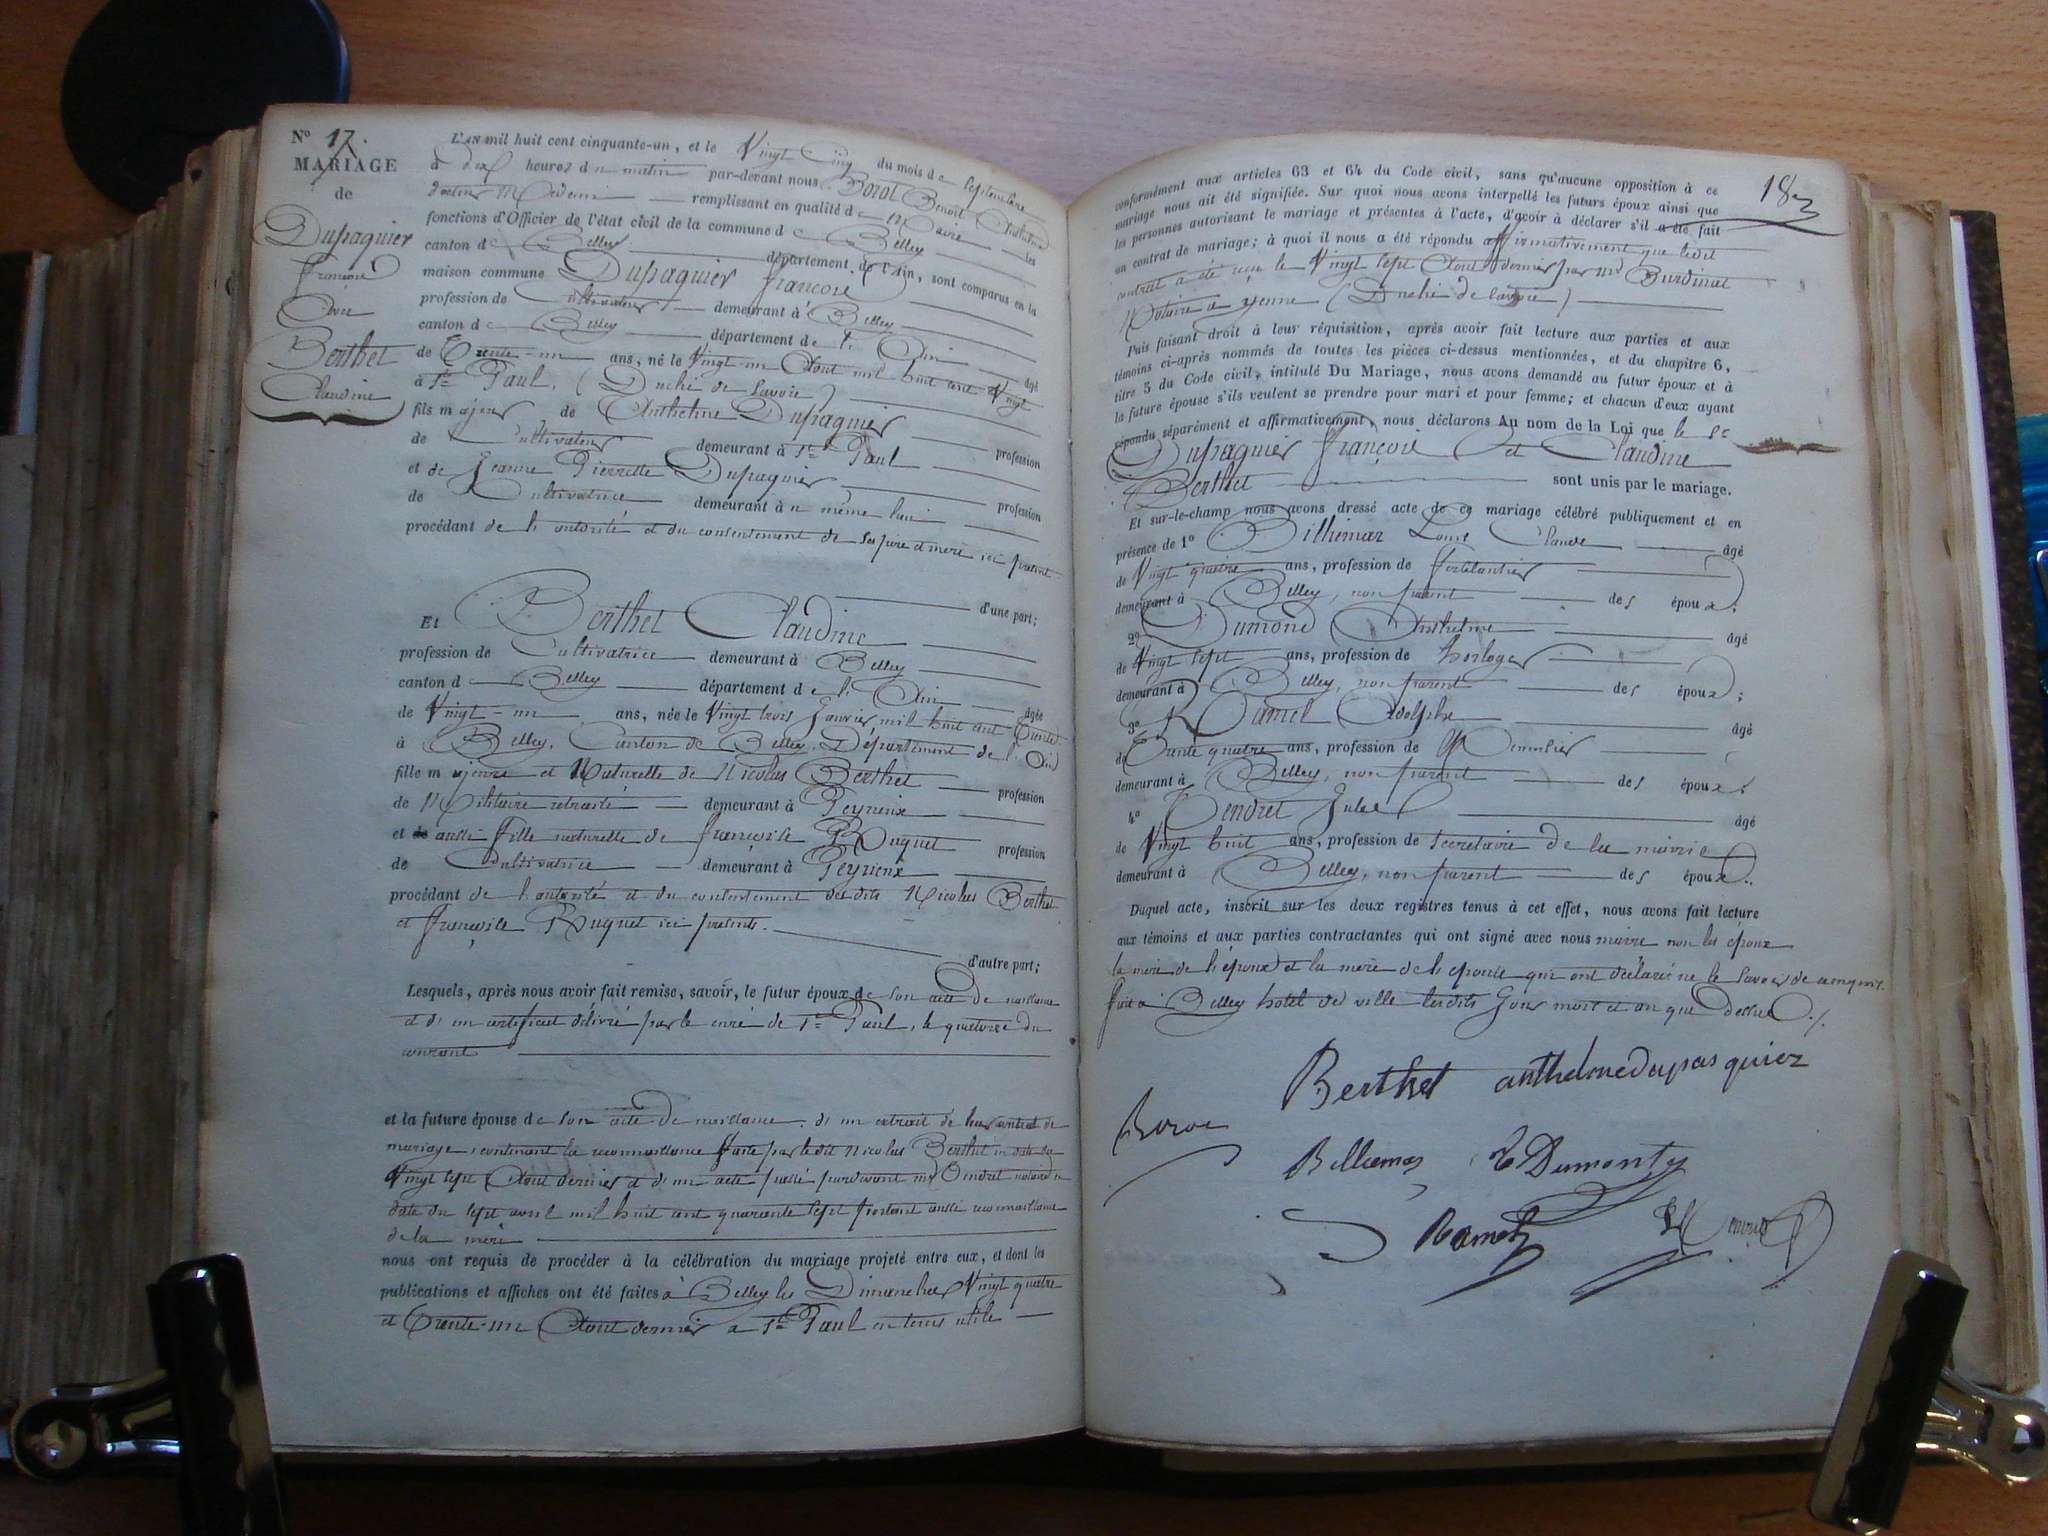 N° 17.
MARIAGE
de
Dupaquier
françois
Avec
Berthet
Claudine
L'AN mil huit cent cinquante-un, et le Vingt Cinq du mois de Septembre
à dix heures du matin par-devant nous Borot Benoit Anthelme
docteur Médecin remplissant en qualité de Maire les
fonctions d'Officier de l'état civil de la commune de Belley
canton de Belley département de l'Ain, sont comparus en la
maison commune Dupaquier françois
profession de Cultivateur demeurant à Belley
canton de Belley département de l'Ain âgé
de Trente-un ans, né le Vingt-un Aout mil huit cent Vingt
à St Paul, (Duché de Savoie)
fils majeur de Anthelme Dupaquier profession
de Cultivateur demeurant à St Paul
et de Jeanne Pierrette Dupaquier profession
de Cultivatrice demeurant à u même lieu
procédant de l'autorité et du consentement de ses père et mère ici présents
d'une part;
Et Berthet Claudine
profession de Cultivatrice demeurant à Belley
canton de Belley département de l'Ain âgée
de Vingt-un ans, née le Vingt trois Janvier mil huit cent Trente
à Belley, Canton de Belley, Département de l'Ain
fille majeure et Naturelle de Nicolas Berthet profession
de Militaire retraité demeurant à Peyrieux
et de aussi fille naturelle de françoise Buguet profession
de Cultivatrice demeurant à Peyrieux
procédant de l'autorité et du consentement des dits Nicolas Berthet
et françoise Buguet ici présents.
d'autre part;
Lesquels, après nous avoir fait remise, savoir, le futur époux de son acte de naissance
et d'un certificat délivré par le curé de St Paul, le quatorze du
courant
et la future épouse de son acte de naissance, d'un extrait de leur contrat de
mariage, contenant la reconnaissance faite par le dit Nicolas Berthet en date du
Vingt sept Aout dernier et d'un acte passé pardevant Me Tendret notaire en
date du sept avril mil huit cent quarante sept portant aussi reconnaissance
de la mère
nous ont requis de procéder à la célébration du mariage projeté entre eux, et dont les
publications et affiches ont été faites à Belley les Dimanches Vingt quatre
et Trente-un Aout dernier a St Paul en tems utile
183
conformément aux articles 63 et 64 du Code civil, sans qu'aucune opposition à ce
mariage nous ait été signifiée. Sur quoi nous avons interpellé les futurs époux ainsi que
les personnes autorisant le mariage et présentes à l'acte, d'avoir à déclarer s'il a été fait
un contrat de mariage; à quoi il nous a été répondu affirmativement que ledit
contrat a été reçu le Vingt sept Aout dernier par Me Burdinat
Notaire a yenne (Duché de Savoie)
Puis faisant droit à leur réquisition, après avoir fait lecture aux parties et aux
témoins ci-après nommés de toutes les pièces ci-dessus mentionnées, et du chapitre 6,
titre 5 du Code civil, intitulé Du Mariage, nous avons demandé au futur époux et à
la future épouse s'ils veulent se prendre pour mari et pour femme; et chacun d'eux ayant
répondu séparément et affirmativement, nous déclarons Au nom de la Loi que le Sr
Dupaquier françois et Claudine
Berthet sont unis par le mariage.
Et sur-le-champ nous avons dressé acte de ce mariage célébré publiquement et en
présence de 1° Billiemaz Louis Claude âgé
de Vingt quatre ans, profession de ferblantier
demeurant à Belley, non parent des époux;
2° Dumond Anthelme âgé
de Vingt sept ans, profession de horloger
demeurant à Belley, non parent des époux;
3° Ramel Adolphe âgé
de Trente quatre ans, profession de
demeurant à Belley, non parent des époux;
4° Tendret Jules âgé
de Vingt huit ans, profession de Secretaire de la mairie
demeurant à Belley, non parent des époux.
Duquel acte, inscrit sur les deux registres tenus à cet effet, nous avons fait lecture
aux témoins et aux parties contractantes qui ont signé avec nous maire non les époux
la mère de l'époux et la mère de l'épouse qui ont déclaré ne le savoir de ce enquis.
fait à Belley hotel de ville lesdits Jour mois et an que dessus ./.
Berthet anthelme dupasquier
Borot
Billiemaz Dumont
Ramel Tendret